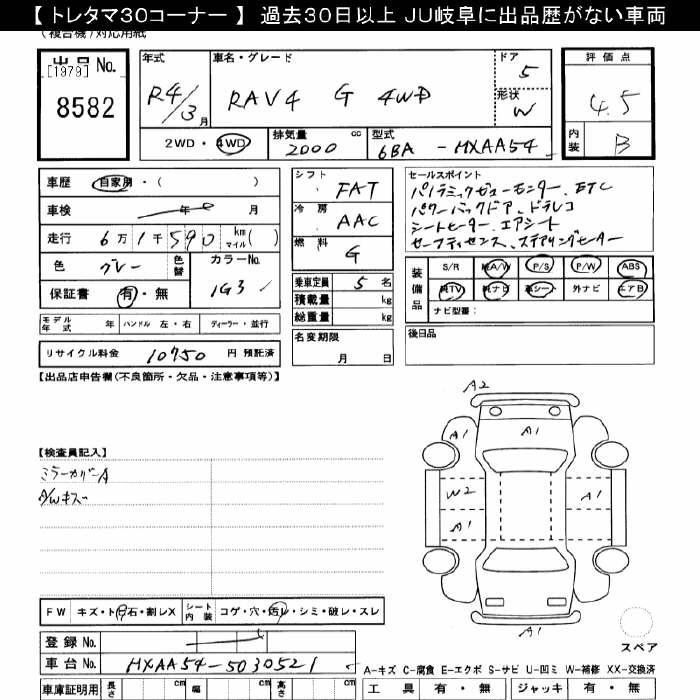 【 トレタマ30コーナー 】 過去30日以上 JU岐阜に出品歴がない車両
(複合機)対応用紙
出品 No.
[1979]
8582
年式
R4/3月
車名・グレード
RAV4 G 4WD
ドア
5
形状
W
評価点
4.5
内装
B
2WD・4WD
排気量
2000 cc
型式
6BA - MXAA54
車歴
自家用・( )
車検
年 月
走行
6万1千590 km マイル( )
色
グレー
色替
カラーNo.
1G3
保証書
有・無
シフト
FAT
冷房
AAC
燃料
G
乗車定員 5 名
積載量 kg
総重量 kg
セールスポイント
パノラミックビューモニター、ETC
パワーバックドア、ドラレコ
シートヒーター、エアシート
セーフティセンス、ステアリングヒーター
装備品
S/R 純A/W P/S P/W ABS
純TV 純ナビ 革シート 外ナビ エアB
ナビ型番:
モデル年式 年 ハンドル 左・右 ディーラー・並行
リサイクル料金 10750 円 預託済
名変期限
月 日
後日品
【出品店申告欄(不良箇所・欠品・注意事項等)】
【検査員記入】
ミラーカバーA
A/Wキズ
A2
A1
A1
A1
W2
A1
A1
A1
スペア
FW キズ・ト 石・割レX
シート内装 コゲ・穴・汚レ・シミ・破レ・スレ
登録 No.
車台 No. MXAA54-5030521
A-キズ C-腐食 E-エクボ S-サビ U-凹ミ W-補修 XX-交換済
車庫証明用 長さ cm 幅 cm 高さ cm
工具 有・無 ジャッキ 有・無